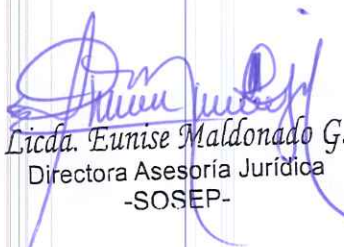 Licda. Eunise Maldonado G.
Directora Asesoría Jurídica
-SOSEP-